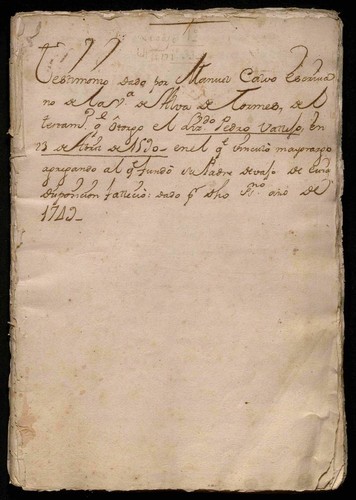 Testimonio dado por Manuel Calvo Escriva
no de la v.ª de Alva de Tormes, del
testam.to q.e otorgo el Liz.do Pedro en
23 de Abril de en el q.e vinculó mayorazgo
agregando al q.e fundó su Padre devajo de cuia
disposicion falleció: dado p.r dho SS.no año de
1742